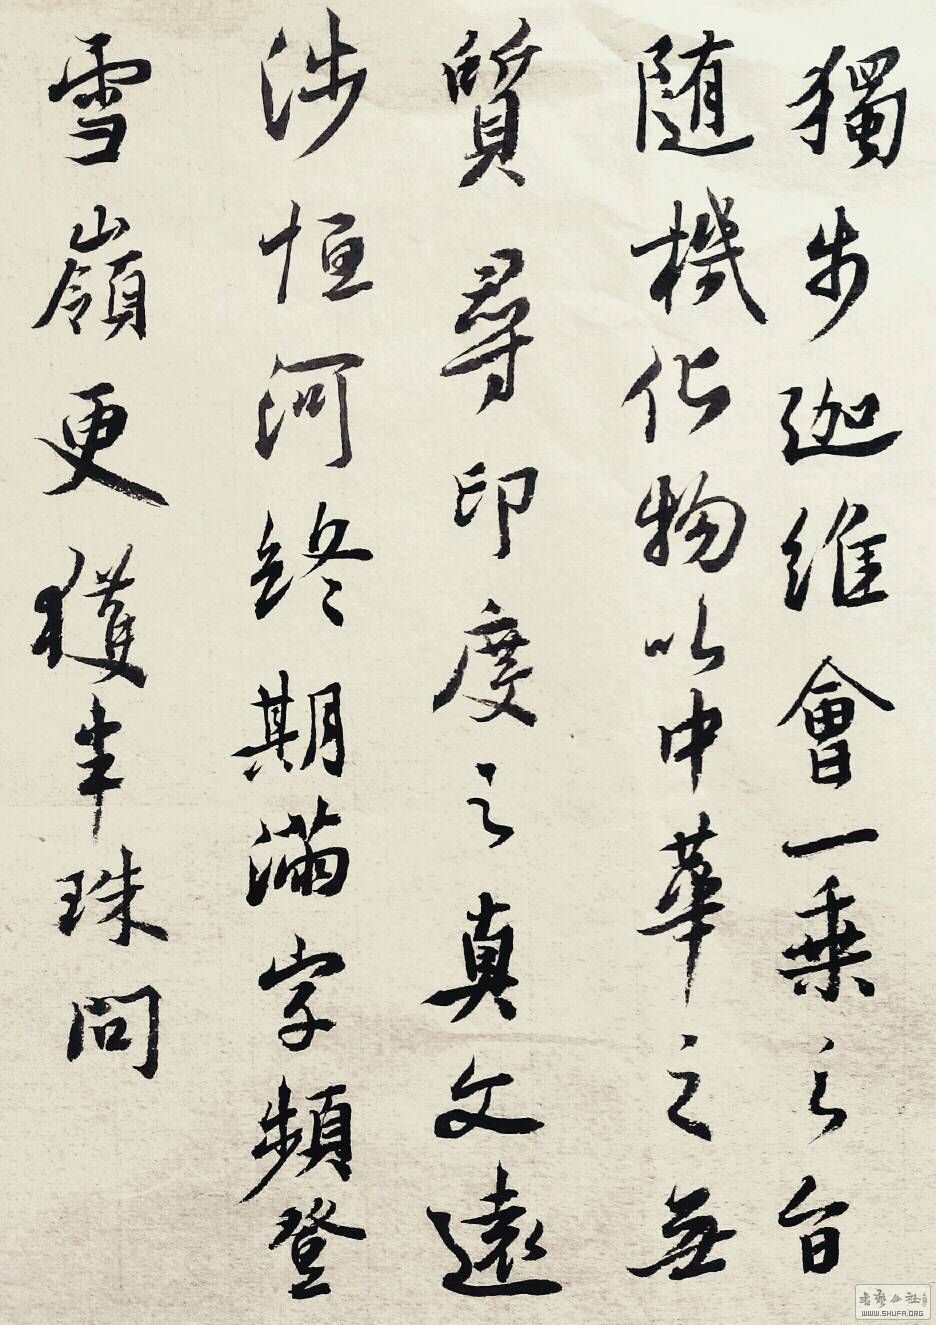 獨步迦維會一乘之旨
随機化物以中華之無
質尋印度之真文遠
涉恒河終期滿字頻登
雪嶺更獲半珠問
書藝公社
WWW.SHUFA.ORG